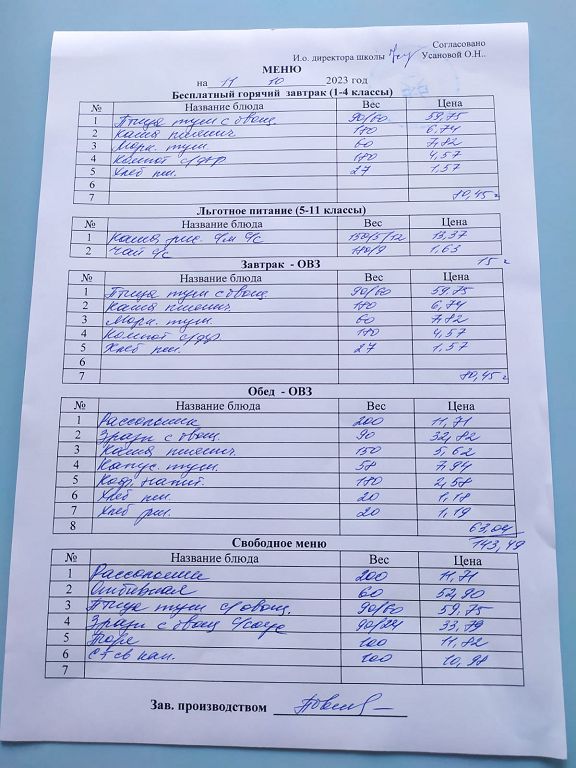 Согласовано
И.о. директора школы Усановой О.Н..
МЕНЮ
на 11 10 2023 год
Бесплатный горячий завтрак (1-4 классы)
№ Название блюда Вес Цена
1 Птица туш с овощ. 90/60 59,75
2 Каша пшенич. 180 6,74
3 Морк. туш. 60 7,82
4 Компот с/фр 180 4,57
5 Хлеб пш. 27 1,57
6
7 80,45
Льготное питание (5-11 классы)
№ Название блюда Вес Цена
1 Каша рис. 150/5/12 13,37
2 Чай с/с 180/9 1,63
15
Завтрак - ОВЗ
№ Название блюда Вес Цена
1 Птица туш с овощ 90/60 59,75
2 Каша пшенич. 180 6,74
3 Морк. туш. 60 7,82
4 Компот с/фр. 180 4,57
5 Хлеб пш. 27 1,57
6
7 80,45
Обед - ОВЗ
№ Название блюда Вес Цена
1 Рассольник 200 11,71
2 Зразы с овощ. 90 32,82
3 Каша пшенич. 150 5,62
4 Капус. туш. 58 7,94
5 Коф. напит. 180 2,58
6 Хлеб пш. 20 1,18
7 Хлеб рж. 20 1,19
8 63,04
143,49
Свободное меню
№ Название блюда Вес Цена
1 Рассольник 200 11,71
2 Отбивная 60 52,90
3 Птица туш с/овощ. 90/60 59,75
4 Зразы с овощ с/соус 90/24 33,79
5 Пюре 100 11,82
6 100 10,98
7
Зав. производством